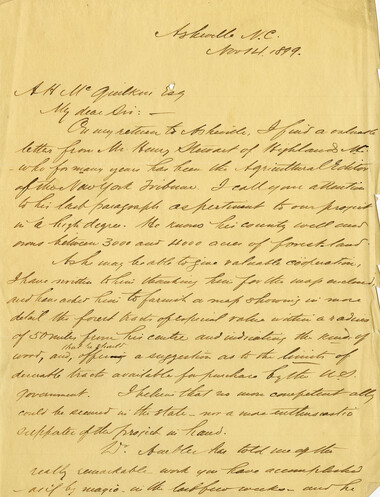 Asheville N.C.
Nov 14. 1899.
A H McQuilkin Esq
My dear Sir: —
On my return to Asheville, I find a valuable
letter from Mr. Henry Stewart of Highlands
who for many years has been the Agricultural Editor
of the New York Tribune. I call your attention
to his last paragraph as pertinent to our project
in a high degree. He knows his county well and
owns between 3000 and 4000 acres of forest land.
As he may be able to give valuable cooperation,
I have written to him thanking him for the map enclosed
and have asked him to furnish a map showing in more
detail the forest tracts of especial value within a radius
of 50 miles from his centre and indicating the kinds of
wood, and, offering a suggestion as to the limits of
desirable tracts available for purchase by the U.S.
government. I believe that no more competent ally
could be secured in the state — nor a more enthusiastic
supporter of the project in hand.
Dr. Ambler has told me of the
really remarkable work you have accomplished
— as if by magic — in the last few weeks — and he